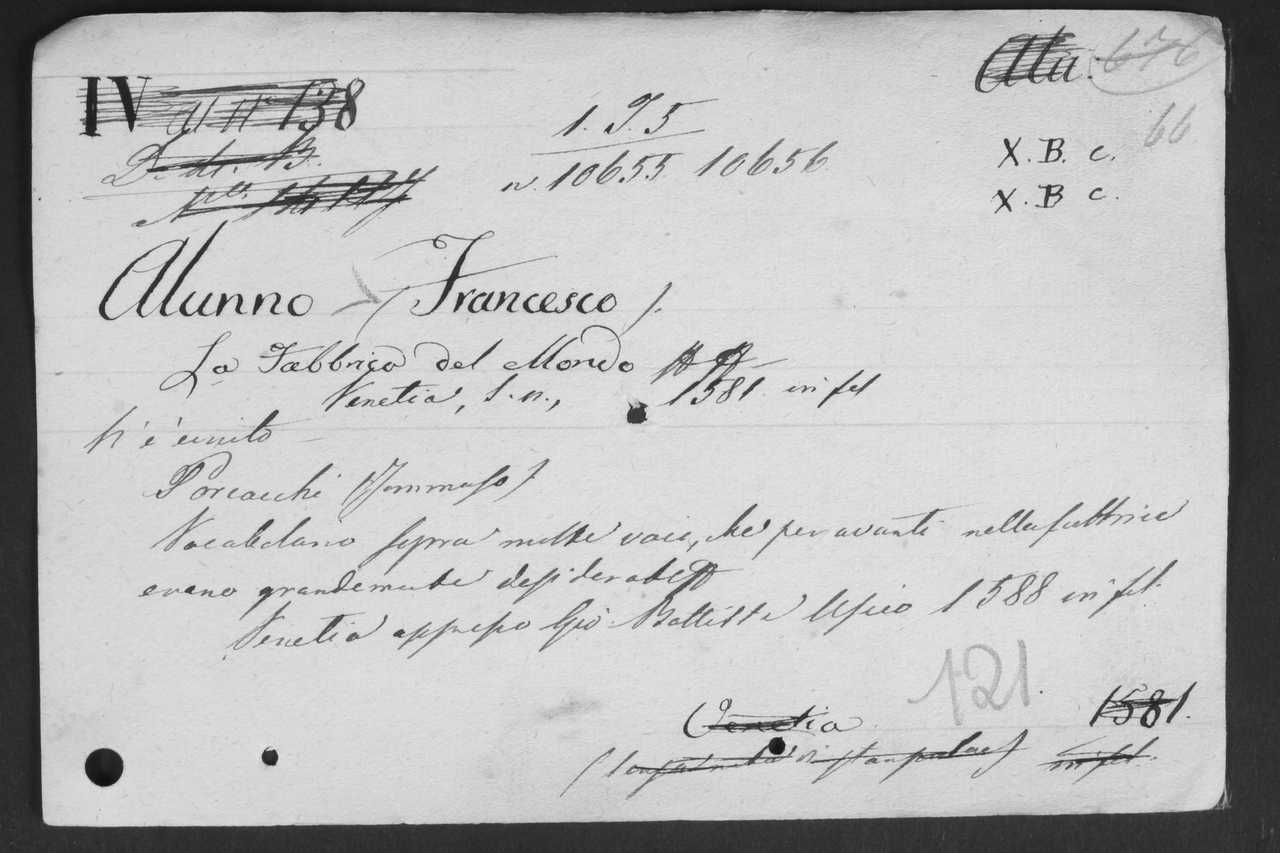 Alu. 676
IV 138
66
1. T. 5
n. 10655 10656
X. B. c.
X. B c.
Alunno (Francesco).
La Fabbrica del Mondo
Venetia, s. n., 1581. in fol
V'è unito
Porcacchi (Tommaso)
Vocabolario sopra molte voci, che per avanti nella fabbrica
erano grandemente desiderate
Venetia appresso Gio. Battista Uscio 1588 in fol.
121.
Venetia 1581.
in fol.